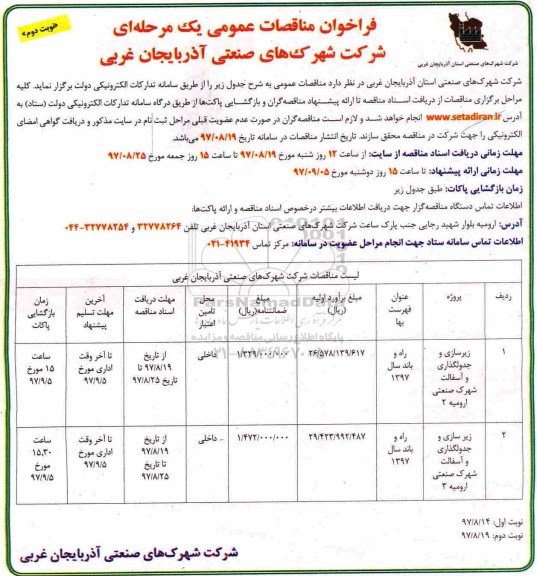 «نوبت دوم»
فراخوان مناقصات عمومی یک مرحله‌ای
شرکت شهرک‌های صنعتی آذربایجان غربی
شرکت شهرک‌های صنعتی استان آذربایجان غربی
شرکت شهرک‌های صنعتی استان آذربایجان غربی در نظر دارد مناقصات عمومی به شرح جدول زیر را از طریق سامانه تدارکات الکترونیکی دولت برگزار نماید. کلیه
مراحل برگزاری مناقصات از دریافت اسناد مناقصه تا ارائه پیشنهاد مناقصه‌گران و بازگشایی پاکت‌ها از طریق درگاه سامانه تدارکات الکترونیکی دولت (ستاد) به
آدرس www.setadiran.ir انجام خواهد شد و لازم است مناقصه‌گران در صورت عدم عضویت قبلی مراحل ثبت نام در سایت مذکور و دریافت گواهی امضای
الکترونیکی را جهت شرکت در مناقصه محقق سازند. تاریخ انتشار مناقصات در سامانه تاریخ ۹۷/۰۸/۱۹ می‌باشد.
مهلت زمانی دریافت اسناد مناقصه از سایت: از ساعت ۱۲ روز شنبه مورخ ۹۷/۰۸/۱۹ تا ساعت ۱۵ روز جمعه مورخ ۹۷/۰۸/۲۵
مهلت زمانی ارائه پیشنهاد: تا ساعت ۱۵ روز دوشنبه مورخ ۹۷/۰۹/۰۵
زمان بازگشایی پاکات: طبق جدول زیر
اطلاعات تماس دستگاه مناقصه‌گزار جهت دریافت اطلاعات بیشتر درخصوص اسناد مناقصه و ارائه پاکت‌ها:
آدرس: ارومیه بلوار شهید رجایی جنب پارک ساعت شرکت شهرک‌های صنعتی استان آذربایجان غربی تلفن ۳۲۷۷۸۲۶۴ و ۳۲۷۷۸۲۵۴-۰۴۴
اطلاعات تماس سامانه ستاد جهت انجام مراحل عضویت در سامانه: مرکز تماس ۴۱۹۳۴-۰۲۱
لیست مناقصات شرکت شهرک‌های صنعتی آذربایجان غربی
ردیف پروژه عنوان فهرست بها مبلغ برآورد اولیه (ریال) مبلغ ضمانتنامه(ریال) محل تامین اعتبار مهلت دریافت اسناد مناقصه آخرین مهلت تسلیم پیشنهاد زمان بازگشایی پاکات
۱ زیرسازی و جدولگذاری و آسفالت شهرک صنعتی ارومیه ۲ راه و باند سال ۱۳۹۷ ۲۶/۵۷۸/۱۳۹/۶۱۷ ۱/۳۲۹/۰۰۰/۰۰۰ داخلی از تاریخ ۹۷/۸/۱۹ تا تاریخ ۹۷/۸/۲۵ تا آخر وقت اداری مورخ ۹۷/۹/۵ ساعت ۱۵ مورخ ۹۷/۹/۵
۲ زیر سازی و جدولگذاری و آسفالت شهرک صنعتی ارومیه ۳ راه و باند سال ۱۳۹۷ ۲۹/۴۲۳/۹۹۲/۴۸۷ ۱/۴۷۲/۰۰۰/۰۰۰ داخلی از تاریخ ۹۷/۸/۱۹ تا تاریخ ۹۷/۸/۲۵ تا آخر وقت اداری مورخ ۹۷/۹/۵ ساعت ۱۵,۳۰ مورخ ۹۷/۹/۵
نوبت اول: ۹۷/۸/۱۴
نوبت دوم: ۹۷/۸/۱۹
شرکت شهرک‌های صنعتی آذربایجان غربی